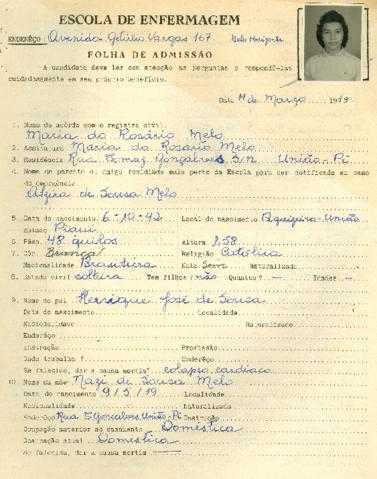 ESCOLA DE ENFERMAGEM
ENDERÊÇO Avenida Getúlio Vargas 167 Belo Horizonte
FOLHA DE ADMISSÃO
A candidata deve ler com atenção as perguntas e respondê-las
cuidadosamente em seu próprio benefício.
Data de Março 19
1. Nome de acôrdo com o registro civil.
Maria do Rosário Melo
2. Assinatura Maria do Rosário Melo
3. Residência Rua Tomaz Gonçalves S/n União-Pi
4. Nome do parente ou amigo residindo mais perto da Escola para ser notificado em caso
de emergência
Alzira de Sousa Melo
5. Data do nascimento 6-10-42 Local do nascimento União
Estado Piauí
6. Pêso 48 quilos Altura 1,58
7. Côr Branca Religião Católica
Nacionalidade Brasileira Naturalizada
8. Estado civil solteira Tem filhos? não Quantos? — Idades —
9. Nome do pai Henrique José de Sousa
Data do nascimento Localidade
Nacionalidade Naturalizado
Enderêço
Instrução Profissão
Onde trabalha? Enderêço
Se falecido, dar a causa mortis colapso cardíaco
10. Nome da mãe Nazi de Sousa Melo
Data do nascimento 9/5/19 Localidade
Nacionalidade Naturalizada
Enderêço Rua T. Gonçalves União-Pi Instrução
Ocupação anterior ao casamento Doméstica
Ocupação atual Doméstica
Se falecida, dar a causa mortis —